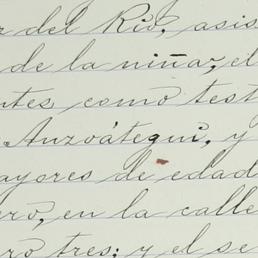 r del Rio, asis
de la niña, el
ntes como test
Anzoátegui, y
ayores de edad
ero, en la calle
ro tres; y el se